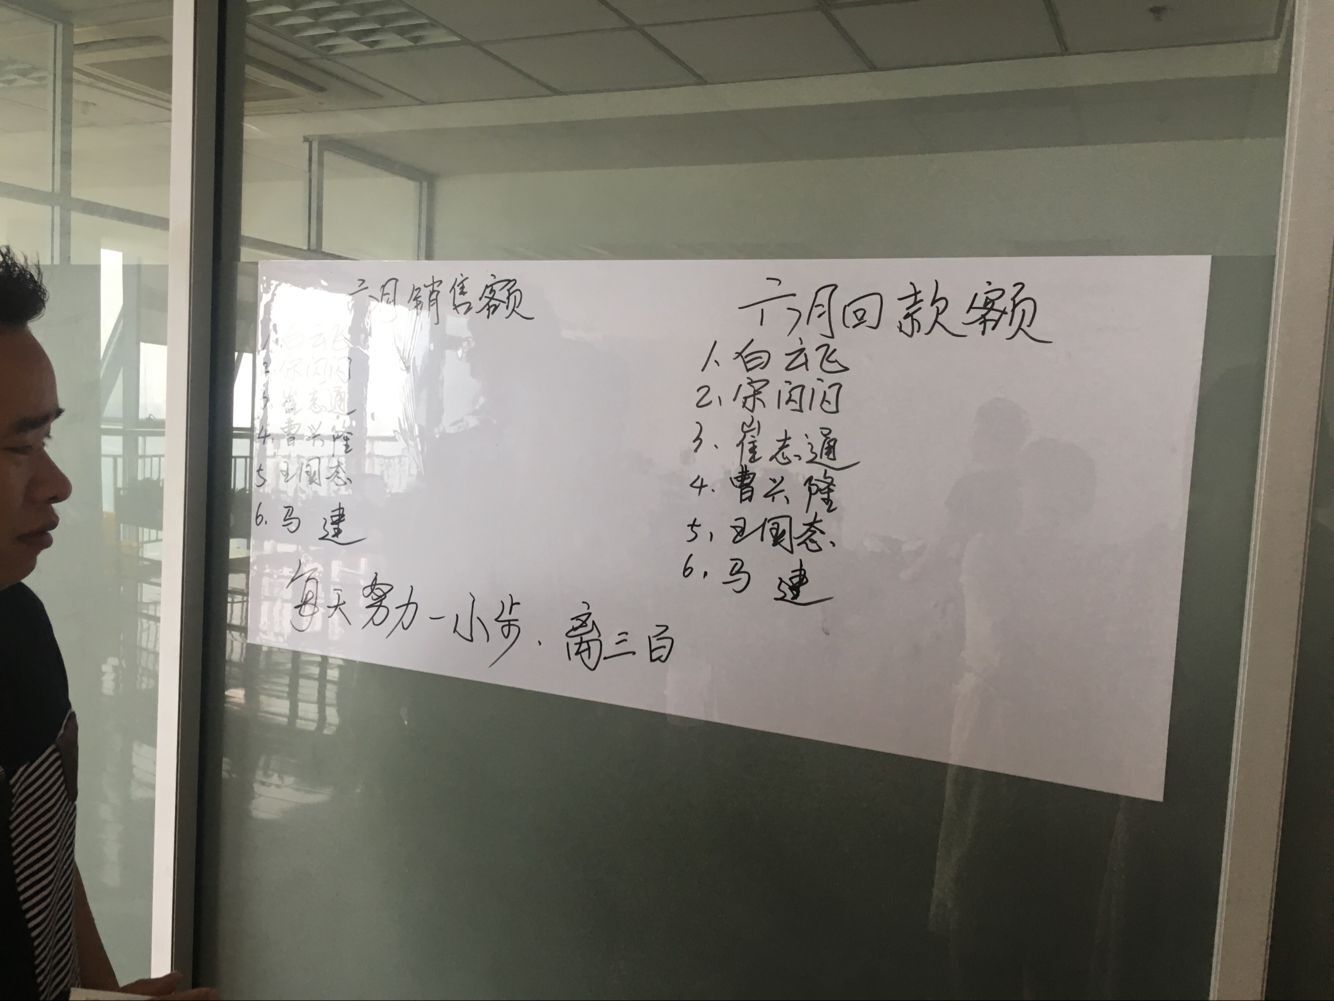 六月销售额
1.白云飞
2.宋闪闪
3.崔志通
4.曹兴隆
5.王国态
6.马建
每天努力一小步.离三百
六月回款额
1.白云飞
2.宋闪闪
3.崔志通
4.曹兴隆
5.王国态
6.马建